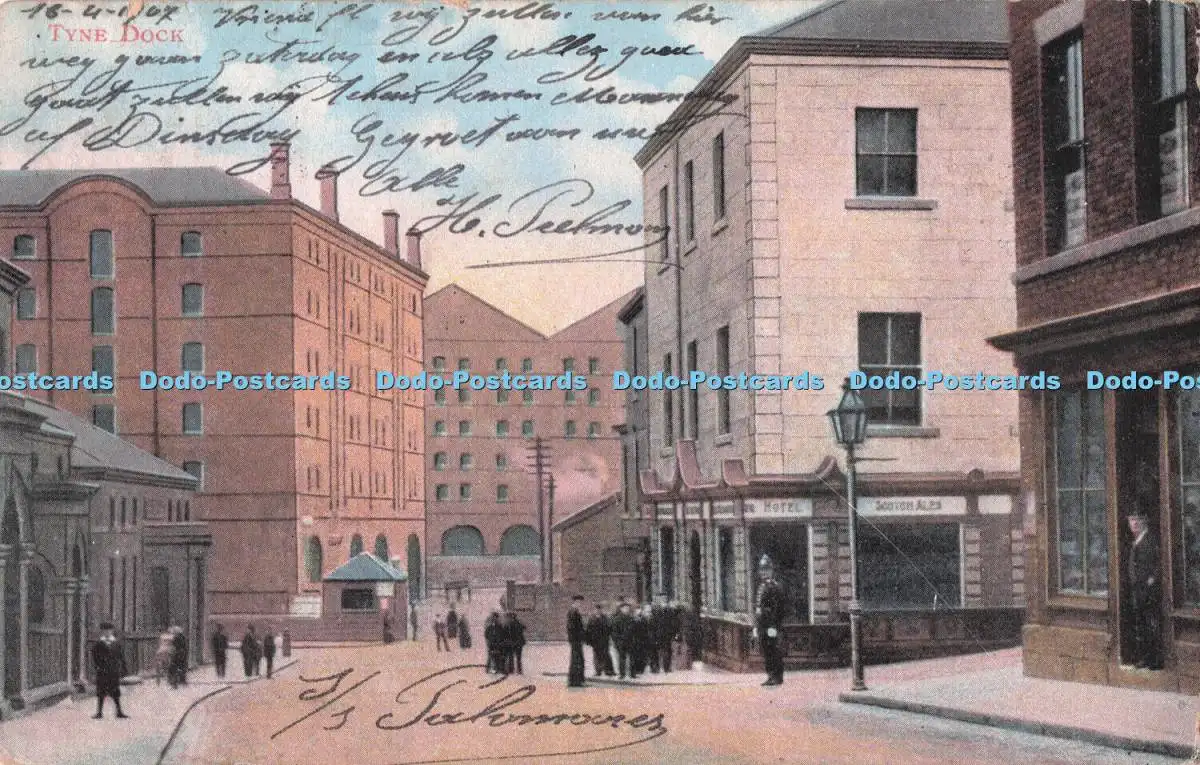 18-4-1907 Vriend fl wij zullen van hier
TYNE DOCK
weg gaan zaturdag en als alles goed
gaat zullen wij thuis komen Maandag
of Dinsdag Gegroet van uw
alle
H.
Dodo-Postcards Dodo-Postcards Dodo-Postcards Dodo-Postcards Dodo-Postcards
HOTEL
SCOTCH ALES
S/S